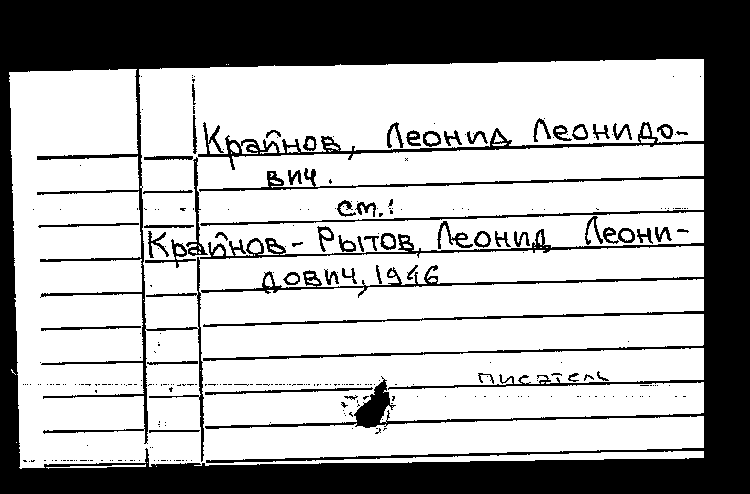 Крайнов, Леонид Леонидо-
вич.
см.:
Крайнов-Рытов, Леонид Леони-
дович, 1946
писатель